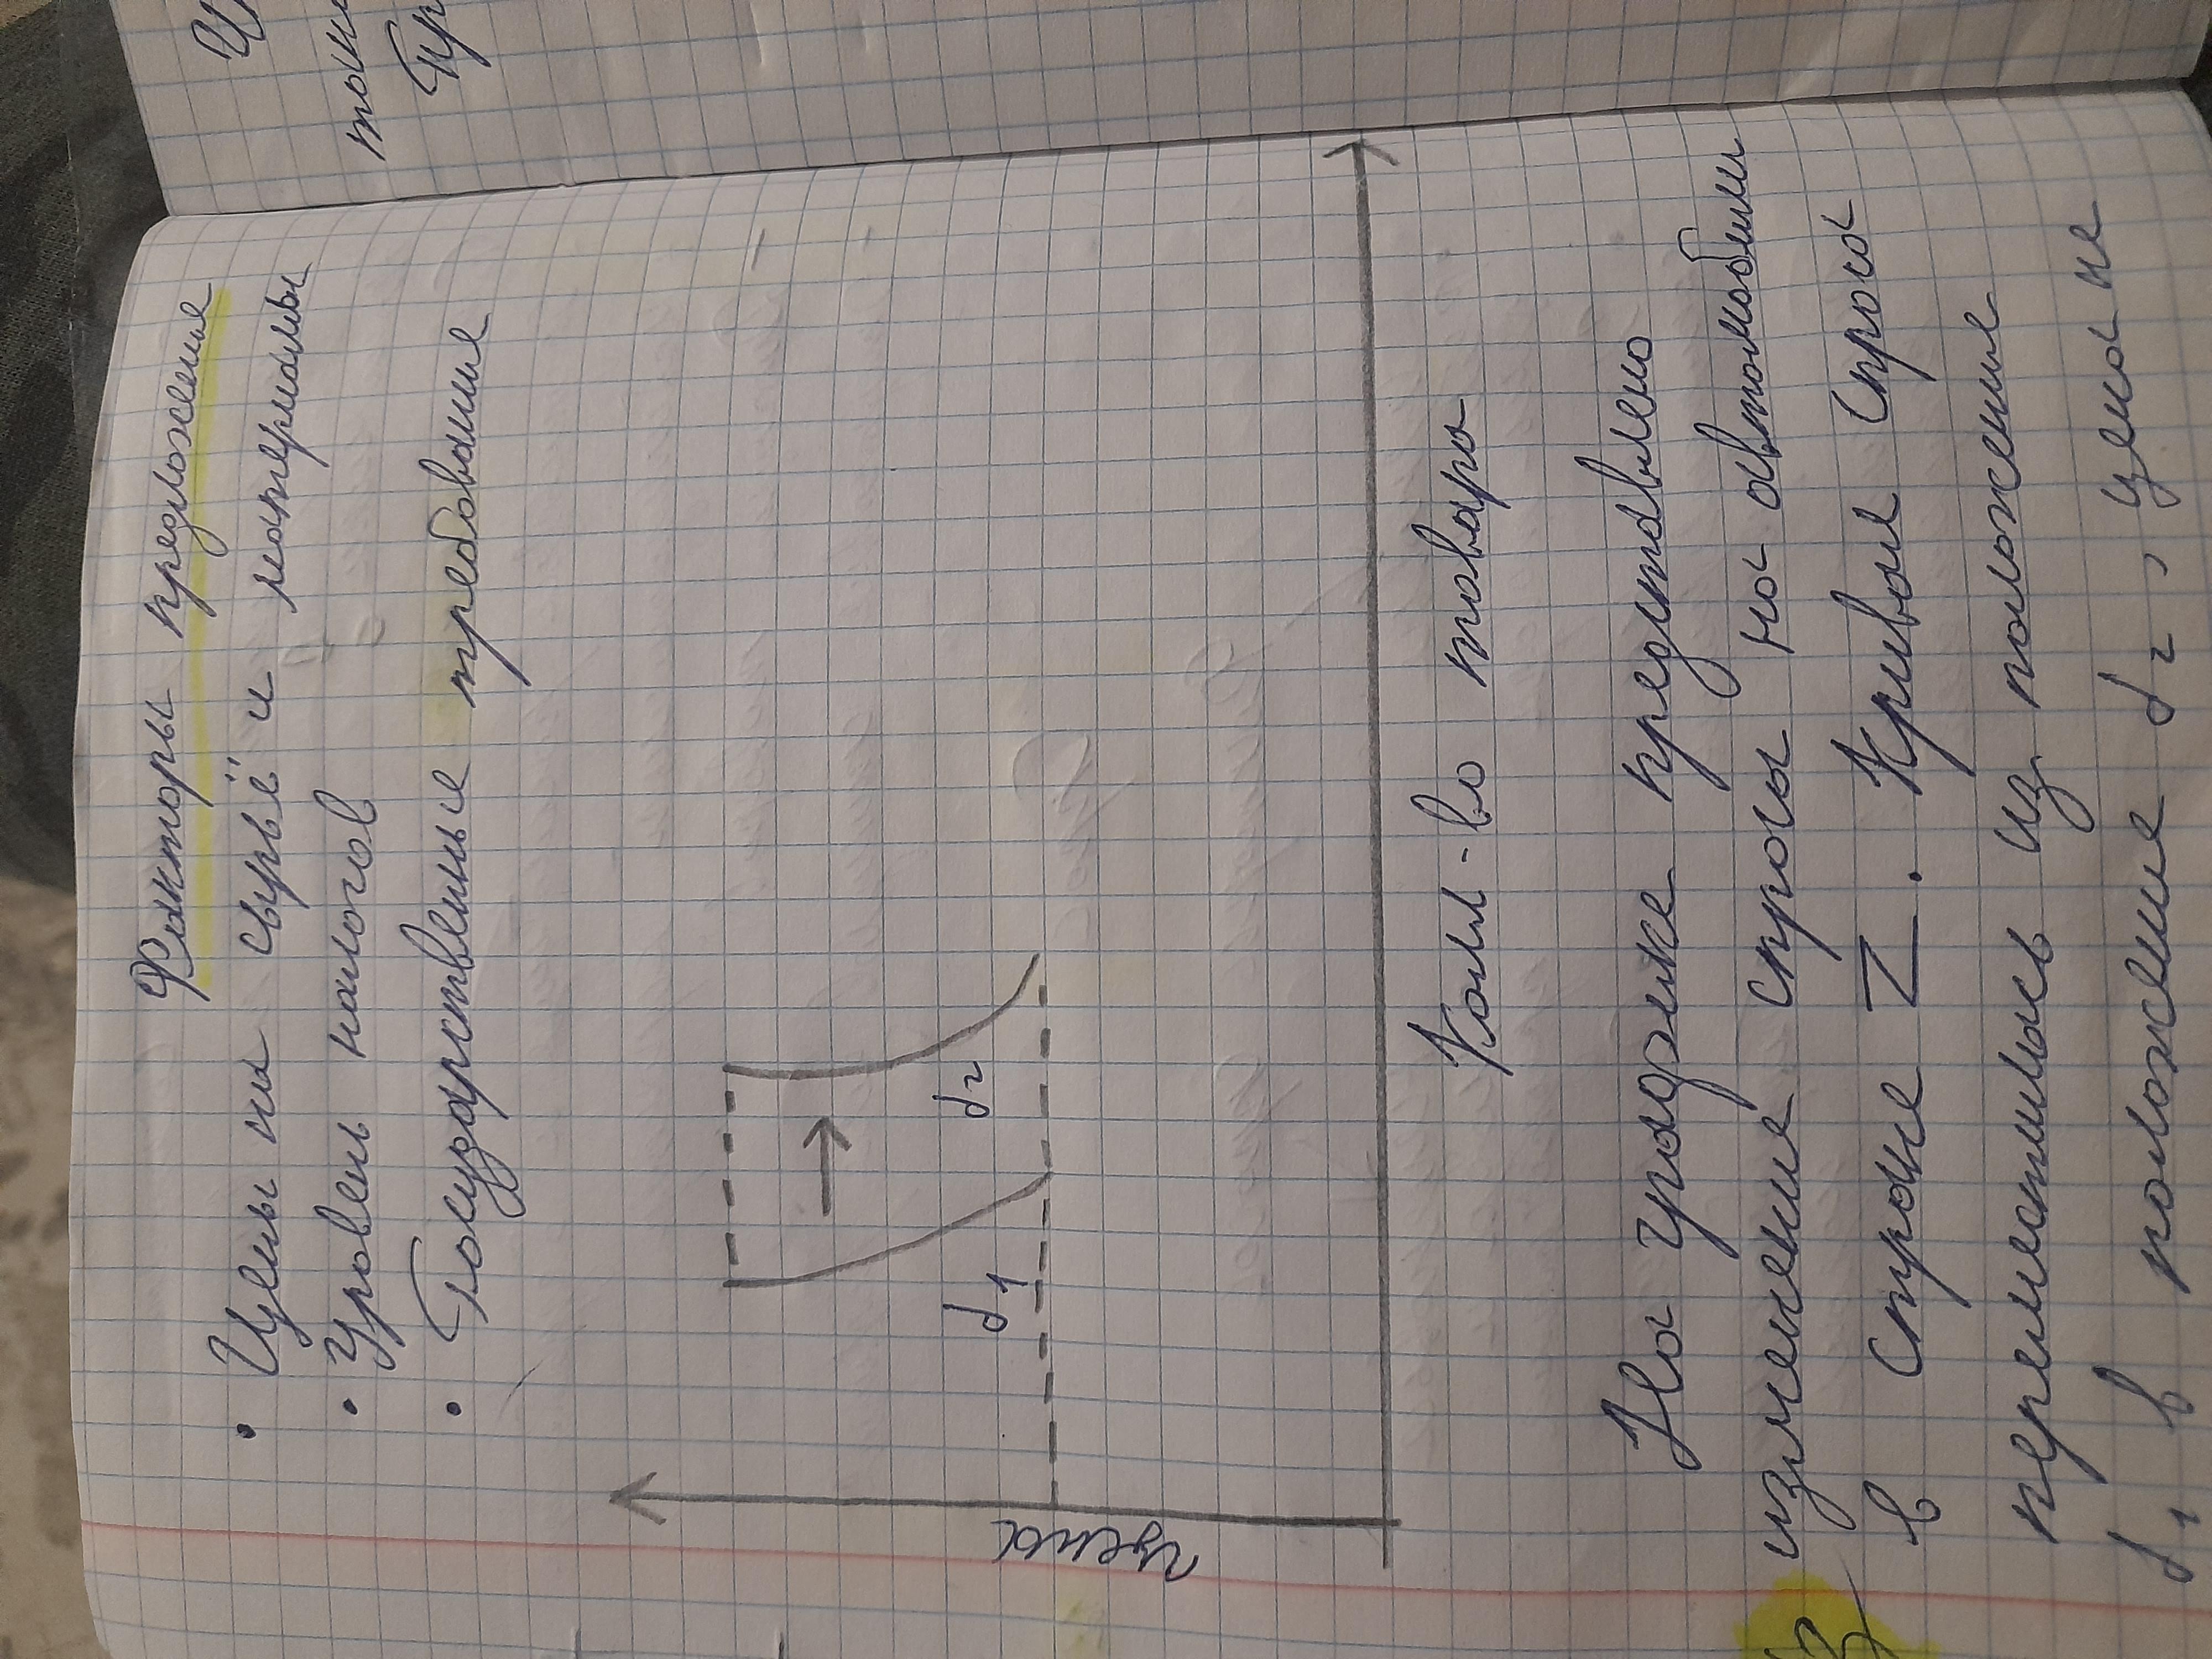 Факторы предложение
• Цены на сырьё и материалы
• Уровень налогов
• Государственные требование
цена
d1
d2
Кол-во товара
На градзике представлено
изменение спросы на автомобили
в стране Z. Кривая спроса
переместилась из положение
d1 в положение d2, цена не